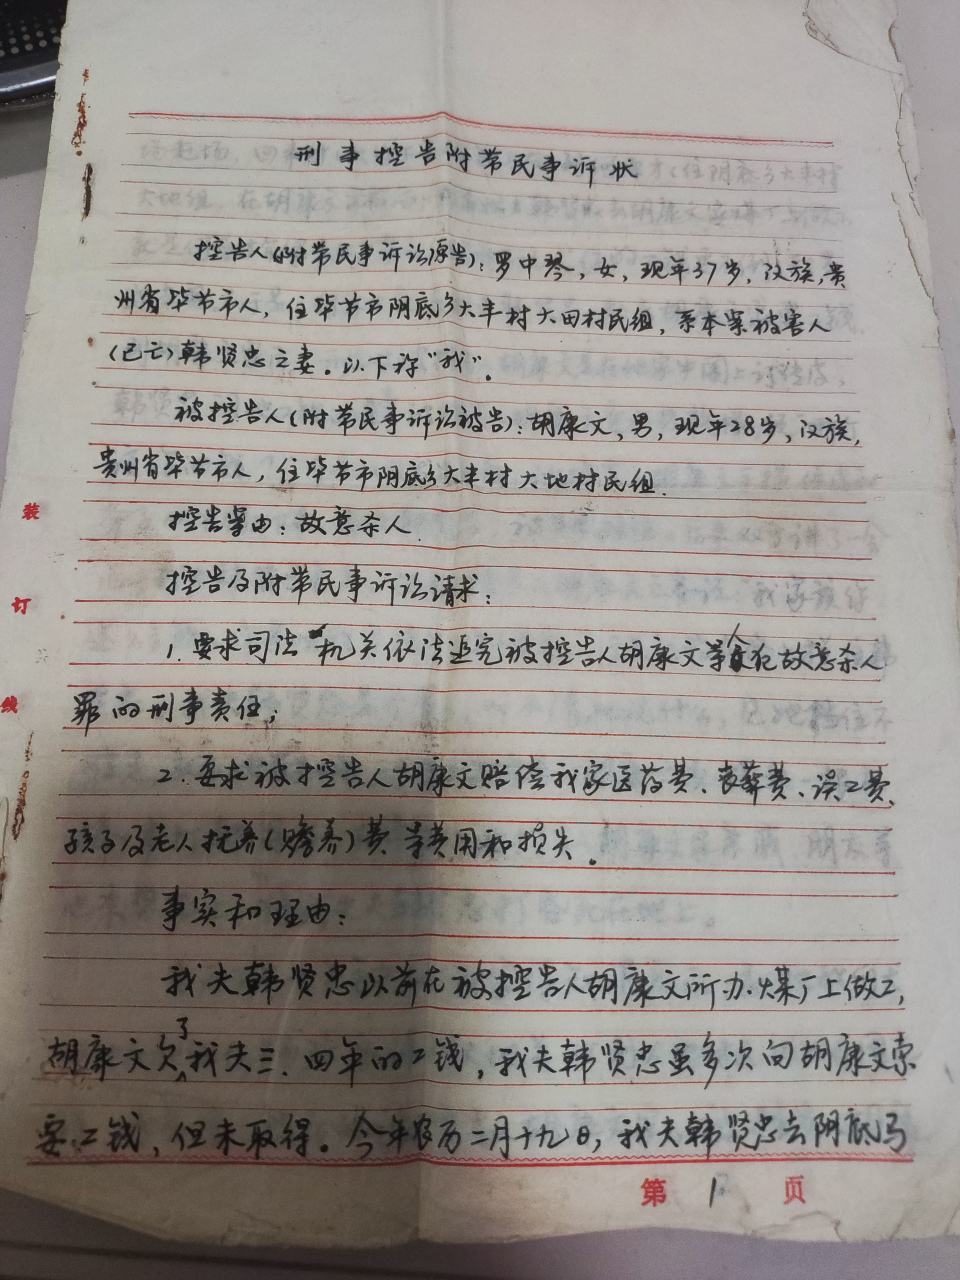 刑事控告附带民事诉状
控告人(附带民事诉讼原告):罗中琴,女,现年37岁,汉族,贵
州省毕节市人,住毕节市阴底乡大丰村大田村民组,系本案被害人
(已亡)韩贤忠之妻。以下称"我"。
被控告人(附带民事诉讼被告):胡康文,男,现年28岁,汉族,
贵州省毕节市人,住毕节市阴底乡大丰村大地村民组.
控告案由:故意杀人.
控告及附带民事诉讼请求:
1.要求司法机关依法追究被控告人胡康文等人犯故意杀人
罪的刑事责任;
2.要求被控告人胡康文赔偿我家医药费、丧葬费、误工费、
孩子及老人抚养(赡养)费等费用和损失.
事实和理由:
我夫韩贤忠以前在被控告人胡康文所办煤厂上做工,
胡康文欠了我夫三、四年的工钱,我夫韩贤忠虽多次向胡康文索
要工钱,但未取得。今年农历二月十九日,我夫韩贤忠去阴底马
装
订
线
第 1 页